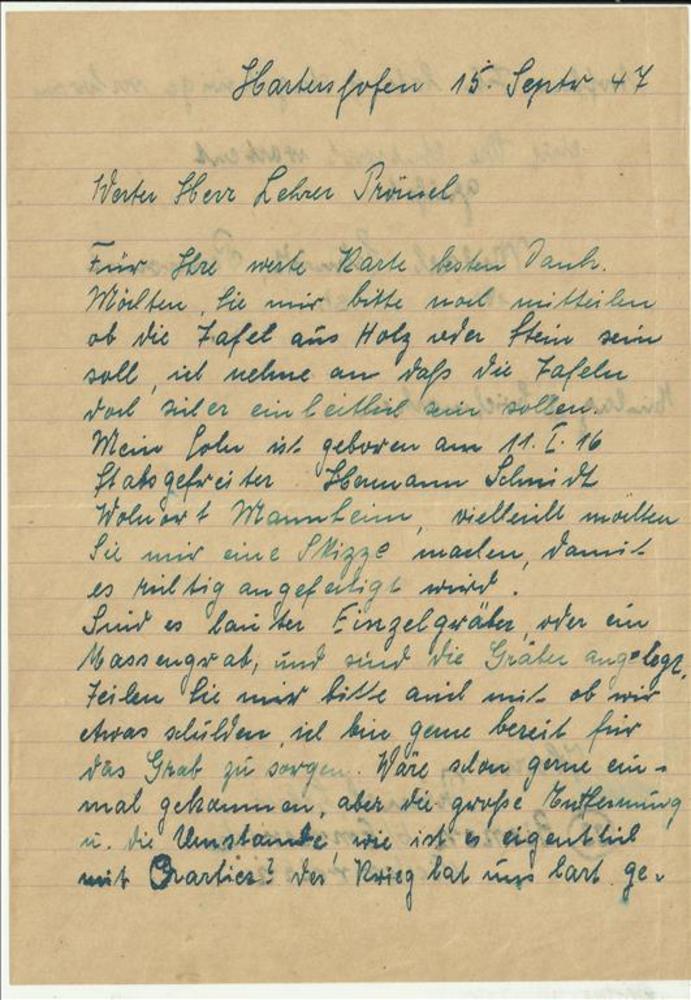 Hartershofen 15. Septr 47
Werter Herr Lehrer Prömsel
Für Ihre werte Karte besten Dank.
Möchten Sie mir bitte noch mitteilen
ob die Tafel aus Holz oder Stein sein
soll, ich nehme an daß die Tafeln
doch sicher einheitlich sein sollen.
Mein Sohn ist geboren am 11. I. 16
Stabsgefreiter Hermann Schmidt
Wohnort Mannheim, vielleicht möchten
Sie mir eine Skizze machen, damit
es richtig angefertigt wird.
Sind es lauter Einzelgräber, oder ein
Massengrab, und sind die Gräber angelegt,
Teilen Sie mir bitte auch mit ob wir
etwas schulden, ich bin gerne bereit für
das Grab zu sorgen. Wäre schon gerne ein-
mal gekommen, aber die große Entfernung
u. die Umstände, wie ist es eigentlich
mit Quartier? Der Krieg hat uns hart ge-